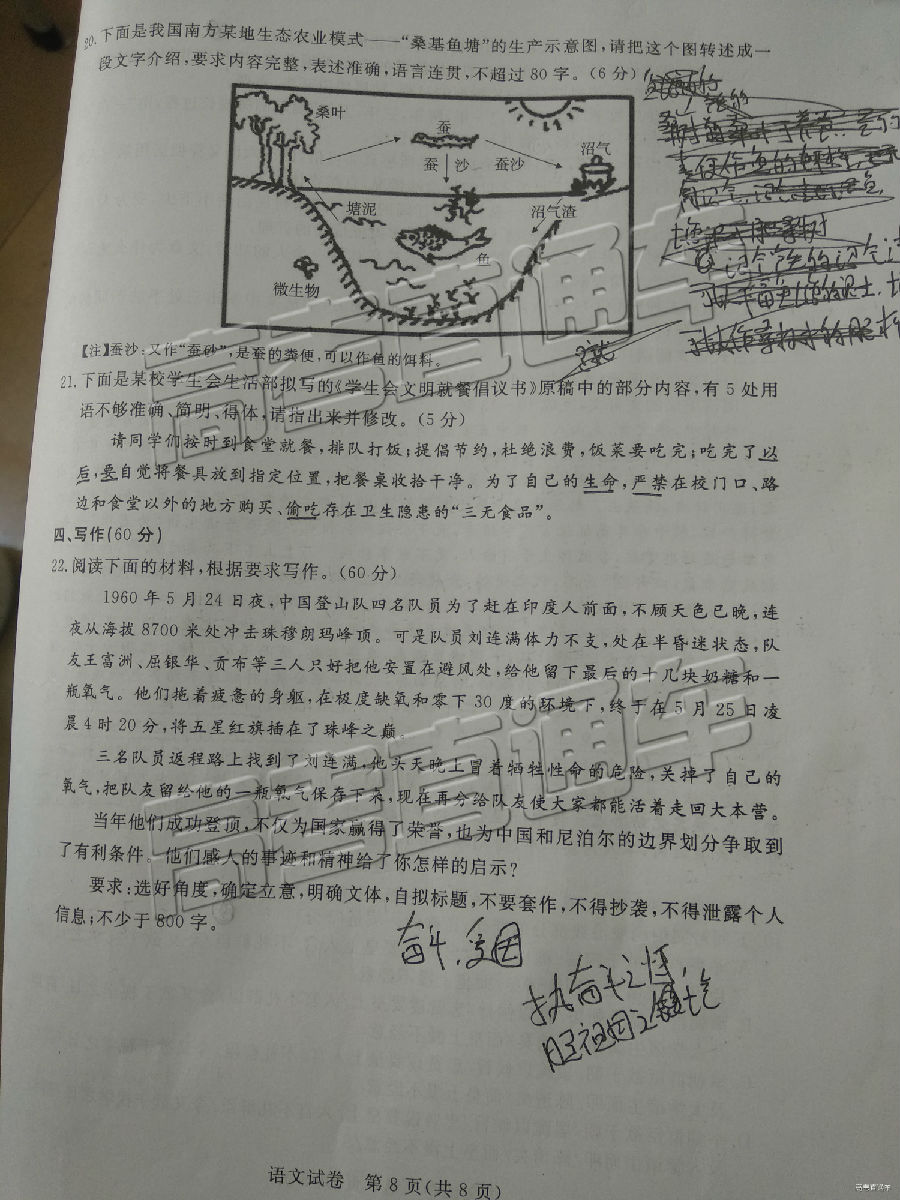 20.下面是我国南方某地生态农业模式——“桑基鱼塘”的生产示意图,请把这个图转述成一
段文字介绍,要求内容完整,表述准确,语言连贯,不超过80字。(6分)
桑叶
蚕
沼气
蚕 沙 蚕沙
塘泥
沼气渣
鱼
微生物
【注】蚕沙:又作“蚕砂”,是蚕的粪便,可以作鱼的饵料。
21.下面是某校学生会生活部拟写的《学生会文明就餐倡议书》原稿中的部分内容,有5处用
语不够准确、简明、得体,请指出来并修改。(5分)
请同学们按时到食堂就餐,排队打饭;提倡节约,杜绝浪费,饭菜要吃完;吃完了以
后,要自觉将餐具放到指定位置,把餐桌收拾干净。为了自己的生命,严禁在校门口、路
边和食堂以外的地方购买、偷吃存在卫生隐患的“三无食品”。
四、写作(60分)
22.阅读下面的材料,根据要求写作。(60分)
1960年5月24日夜,中国登山队四名队员为了赶在印度人前面,不顾天色已晚,连
夜从海拔8700米处冲击珠穆朗玛峰顶。可是队员刘连满体力不支,处在半昏迷状态,队
友王富洲、屈银华、贡布等三人只好把他安置在避风处,给他留下最后的十几块奶糖和一
瓶氧气。他们拖着疲惫的身躯,在极度缺氧和零下30度的环境下,终于在5月25日凌
晨4时20分,将五星红旗插在了珠峰之巅。
三名队员返程路上找到了刘连满,他头天晚上冒着牺牲性命的危险,关掉了自己的
氧气,把队友留给他的一瓶氧气保存下来,现在再分给队友使大家都能活着走回大本营。
当年他们成功登顶,不仅为国家赢得了荣誉,也为中国和尼泊尔的边界划分争取到
了有利条件。他们感人的事迹和精神给了你怎样的启示?
要求:选好角度,确定立意,明确文体,自拟标题,不要套作,不得抄袭,不得泄露个人
信息;不少于800字。
奋斗,爱国
执奋斗之
祖国之
语文试卷 第8页(共8页)
高考直通车
高考直通车
高考直通车